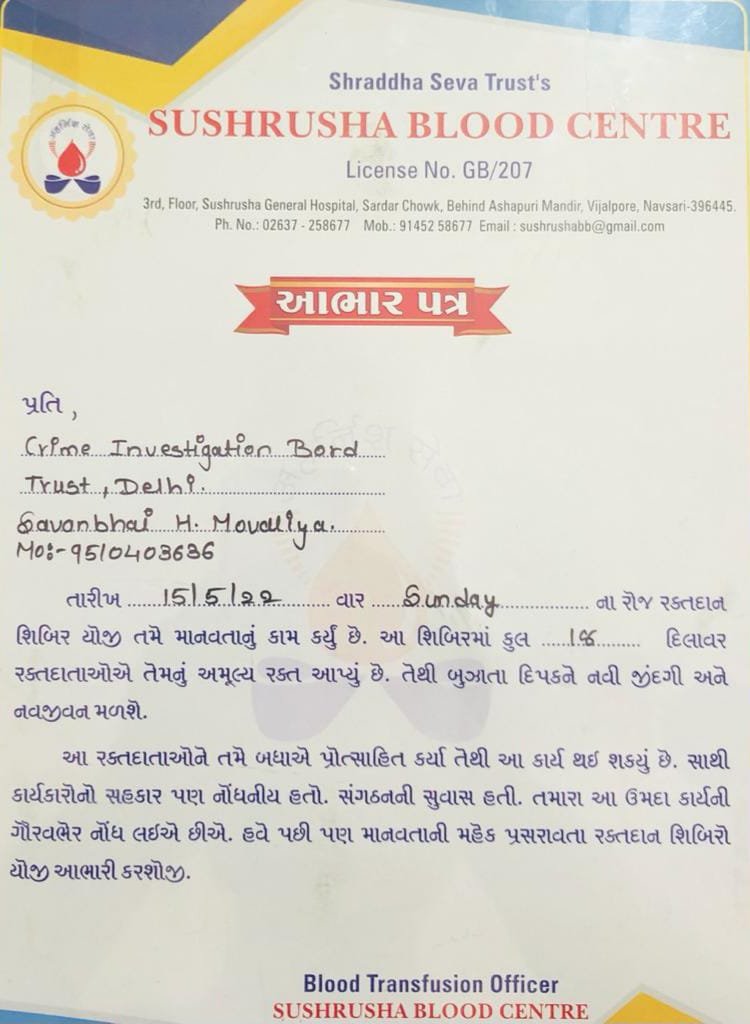 Shraddha Seva Trust's
SUSHRUSHA BLOOD CENTRE
License No. GB/207
3rd, Floor, Sushrusha General Hospital, Sardar Chowk, Behind Ashapuri Mandir, Vijalpore, Navsari-396445.
Ph. No.: 02637 - 258677 Mob.: 91452 58677 Email : sushrushabb@gmail.com
આભાર પત્ર
પ્રતિ,
Crime Investigation Bord
Trust, Delhi.
Savanbhai H. Movaliya.
Mo:-9510403636
તારીખ ......15/5/22............ વાર .....Sunday............... ના રોજ રક્તદાન
શિબિર યોજી તમે માનવતાનું કામ કર્યું છે. આ શિબિરમાં કુલ ............. દિલાવર
રક્તદાતાઓએ તેમનું અમૂલ્ય રક્ત આપ્યું છે. તેથી બુઝાતા દિપકને નવી જીંદગી અને
નવજીવન મળશે.
આ રક્તદાતાઓને તમે બધાએ પ્રોત્સાહિત કર્યા તેથી આ કાર્ય થઈ શકયું છે. સાથી
કાર્યકારોનો સહકાર પણ નોંધનીય હતો. સંગઠનની સુવાસ હતી. તમારા આ ઉમદા કાર્યની
ગૌરવભેર નોંધ લઈએ છીએ. હવે પછી પણ માનવતાની મહેક પ્રસરાવતા રક્તદાન શિબિરો
યોજી આભારી કરશોજી.
Blood Transfusion Officer
SUSHRUSHA BLOOD CENTRE